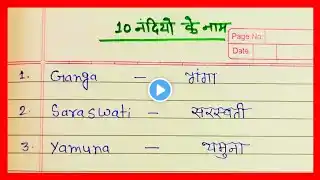 10 नदियो के नाम
Page No:
Date
1. Ganga – गंगा
2. Saraswati – सरस्वती
3. Yamuna – यमुना